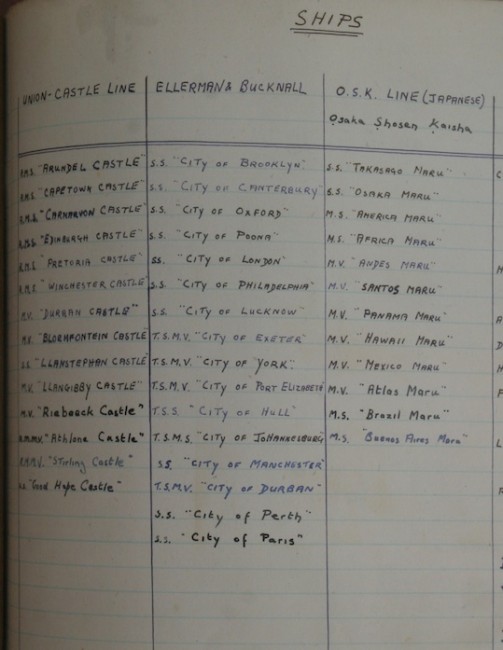 SHIPS
UNION-CASTLE LINE
R.M.S. "ARUNDEL CASTLE"
R.M.S. "CAPETOWN CASTLE"
R.M.S. "CARNARVON CASTLE"
R.M.S. "EDINBURGH CASTLE"
R.M.S. "PRETORIA CASTLE"
R.M.S. "WINCHESTER CASTLE"
M.V. "DURBAN CASTLE"
M.V. "BLOEMFONTEIN CASTLE
S.S. "LLANSTEPHAN CASTLE
M.V. "LLANGIBBY CASTLE"
M.V. "Riebeeck Castle"
R.M.M.V. "Athlone Castle"
R.M.M.V. "Stirling Castle"
S.S. "Good Hope Castle"
ELLERMAN & BUCKNALL
S.S. "CITY OF BROOKLYN"
S.S. "CITY OF CANTERBURY"
S.S. "CITY OF OXFORD"
S.S. "CITY OF POONA"
S.S. "CITY OF LONDON"
S.S. "CITY OF PHILADELPHIA"
S.S. "CITY OF LUCKNOW"
T.S.M.V. "CITY OF EXETER"
T.S.M.V. "CITY OF YORK"
T.S.M.V. "CITY OF PORT ELIZABETH
T.S.S. "CITY OF HULL"
T.S.M.S. "CITY OF JOHANNESBURG
S.S. "CITY OF MANCHESTER"
T.S.M.V. "CITY OF DURBAN"
S.S. "City of Perth"
S.S. "City of Paris"
O.S.K. LINE (JAPANESE)
Osaka Shosen Kaisha
S.S. "TAKASAGO MARU"
S.S. "OSAKA MARU"
M.S. "AMERICA MARU"
M.S. "AFRICA MARU"
M.V. "ANDES MARU"
M.V. "SANTOS MARU"
M.V. "PANAMA MARU"
M.V. "HAWAII MARU"
M.V. "MEXICO MARU"
M.V. "Atlas Maru"
M.S. "Brazil Maru"
M.S. "Buenos Aires Maru"